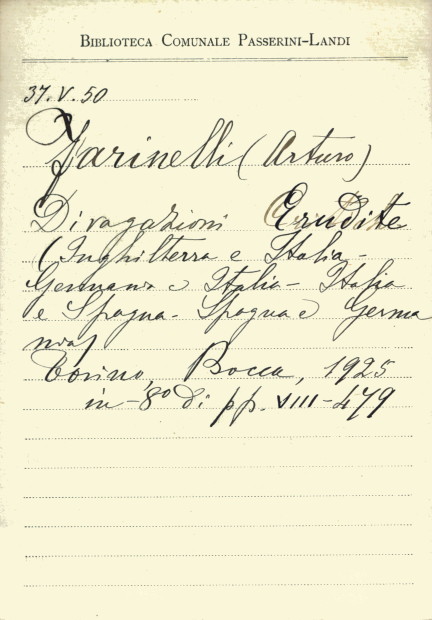 BIBLIOTECA COMUNALE PASSERINI-LANDI
37.V.50
Farinelli (Arturo)
Divagazioni Erudite
(Inghilterra e Italia -
Germania e Italia - Italia
e Spagna - Spagna e Germa
nia)
Torino, Bocca, 1925
in-8º di pp. VIII-479